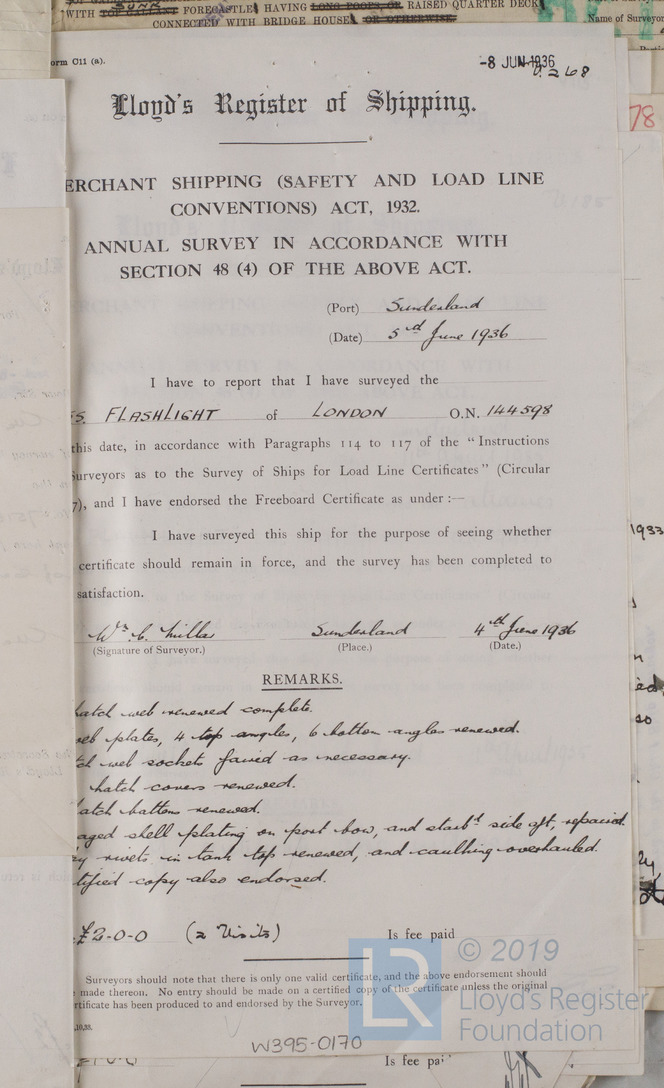 "WITH TOP GALLANT FORECASTLE, HAVING LONG POOPS, OR RAISED QUARTER DECK
CONNECTED WITH BRIDGE HOUSE, OR OTHERWISE.
Name of Surveyor
orm C11 (a).
-8 JUN 1936
0268
Lloyd's Register of Shipping.
78
ERCHANT SHIPPING (SAFETY AND LOAD LINE
CONVENTIONS) ACT, 1932.
ANNUAL SURVEY IN ACCORDANCE WITH
SECTION 48 (4) OF THE ABOVE ACT.
(Port) Sunderland
(Date) 3rd June 1936
I have to report that I have surveyed the
S. FLASHLIGHT of LONDON O.N. 144598
this date, in accordance with Paragraphs 114 to 117 of the "Instructions
Surveyors as to the Survey of Ships for Load Line Certificates" (Circular
7), and I have endorsed the Freeboard Certificate as under :—
I have surveyed this ship for the purpose of seeing whether
1933
certificate should remain in force, and the survey has been completed to
satisfaction.
Wm. C. Miller Sunderland 4th June 1936
(Signature of Surveyor.) (Place.) (Date.)
REMARKS.
hatch web renewed complete.
web plates, 4 top angles, 6 bottom angles renewed.
ch web sockets faired as necessary.
hatch covers renewed.
atch battens renewed.
aged shell plating on port bow, and starbd side aft, repaired.
y rivets in tank top renewed, and caulking overhauled.
tified copy also endorsed.
£2-0-0 (2 Visits) Is fee paid
Surveyors should note that there is only one valid certificate, and the above endorsement should
made thereon. No entry should be made on a certified copy of the certificate unless the original
rtificate has been produced to and endorsed by the Surveyor.
© 2019
Lloyd's Register
Foundation
LR
W395-0170
Is fee pai